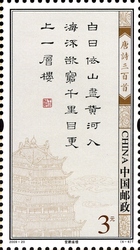 白日依山盡黄河入
海流欲窮千里目更
上一層樓
《唐詩三百首》
CHINA 中国邮政
3元